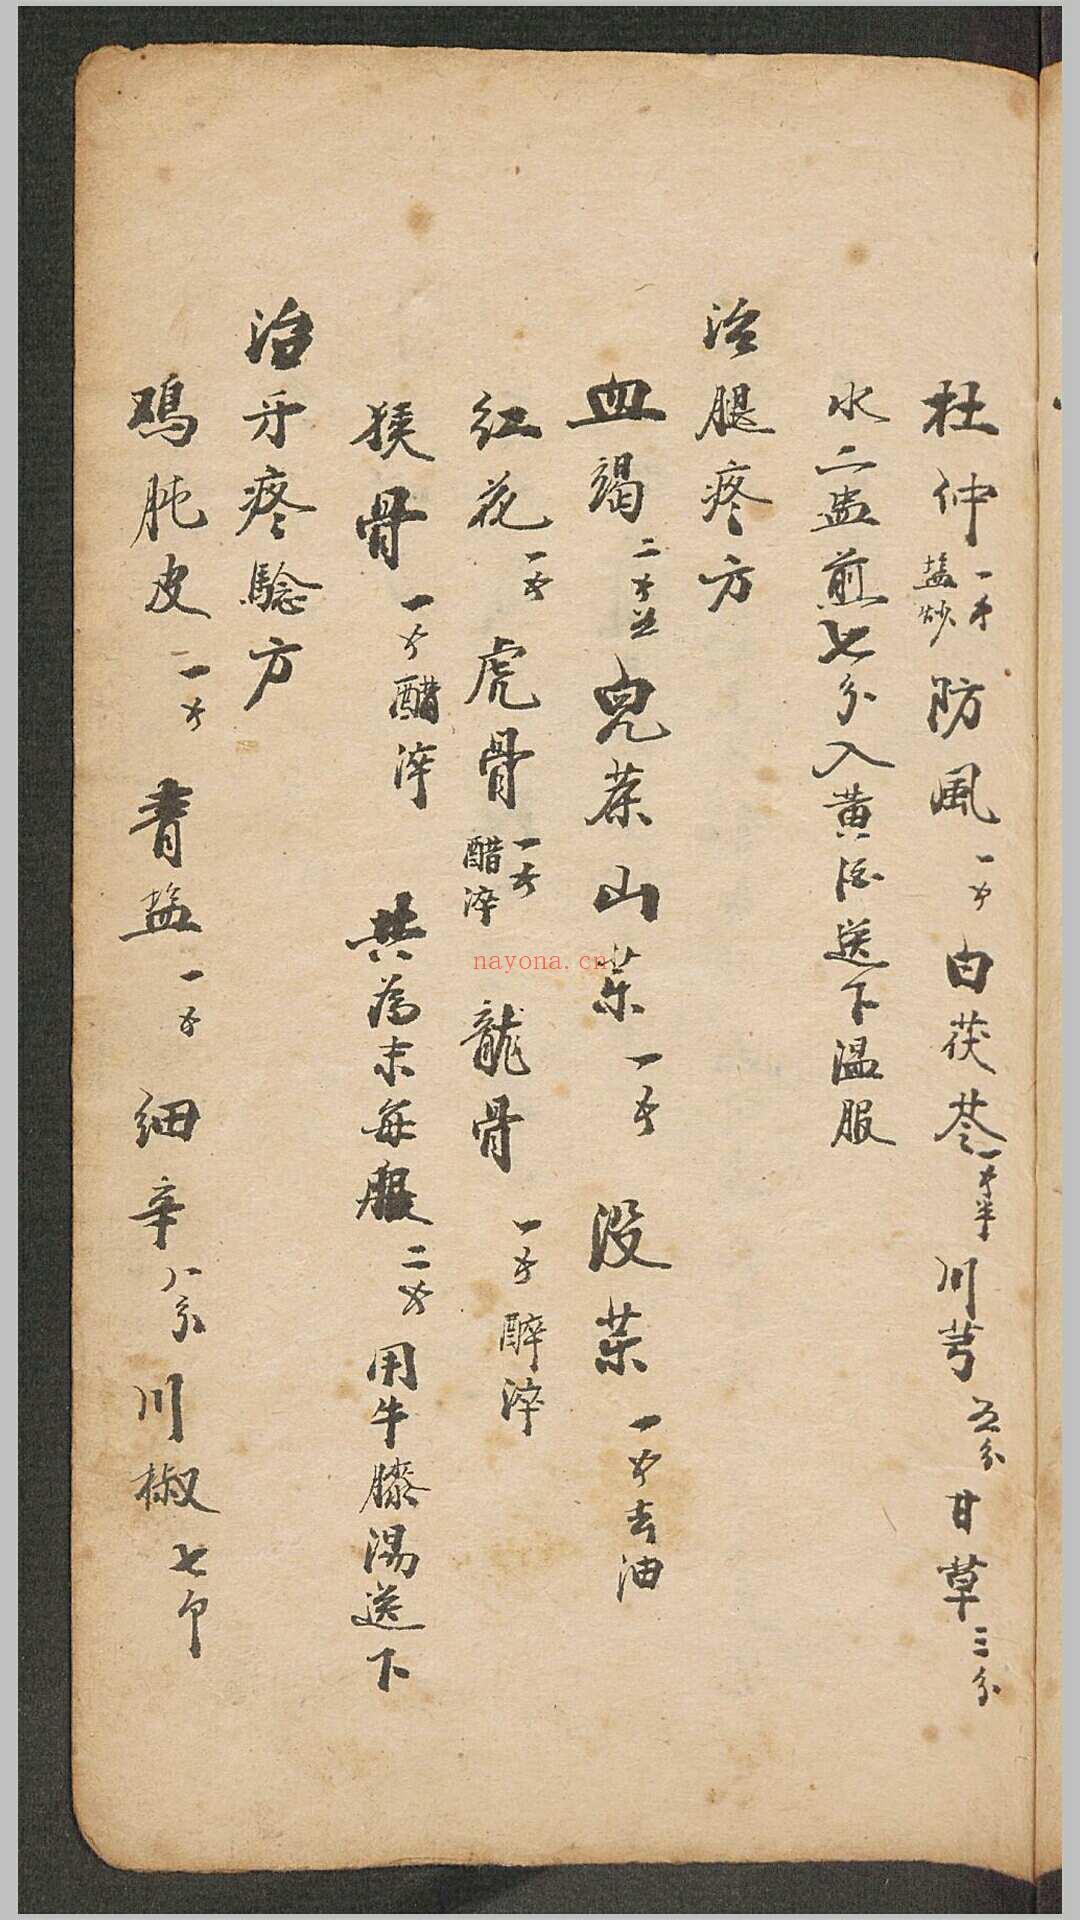 杜仲一钱盐炒 防風一钱 白茯苓一钱半 川芎五分 甘草三分
水二盅煎七分入黄酒送下温服
治腿疼方
血竭二钱五 皃茶山茱一钱 没茱一钱去油
红花一钱 虎骨一钱醋淬 龍骨一钱醉淬
猴骨一钱醋淬 共為末每服二钱用牛膝湯送下
治牙疼騐方
鳮肫皮一钱 青盐一钱 细辛八分 川椒七分
nayona.cn